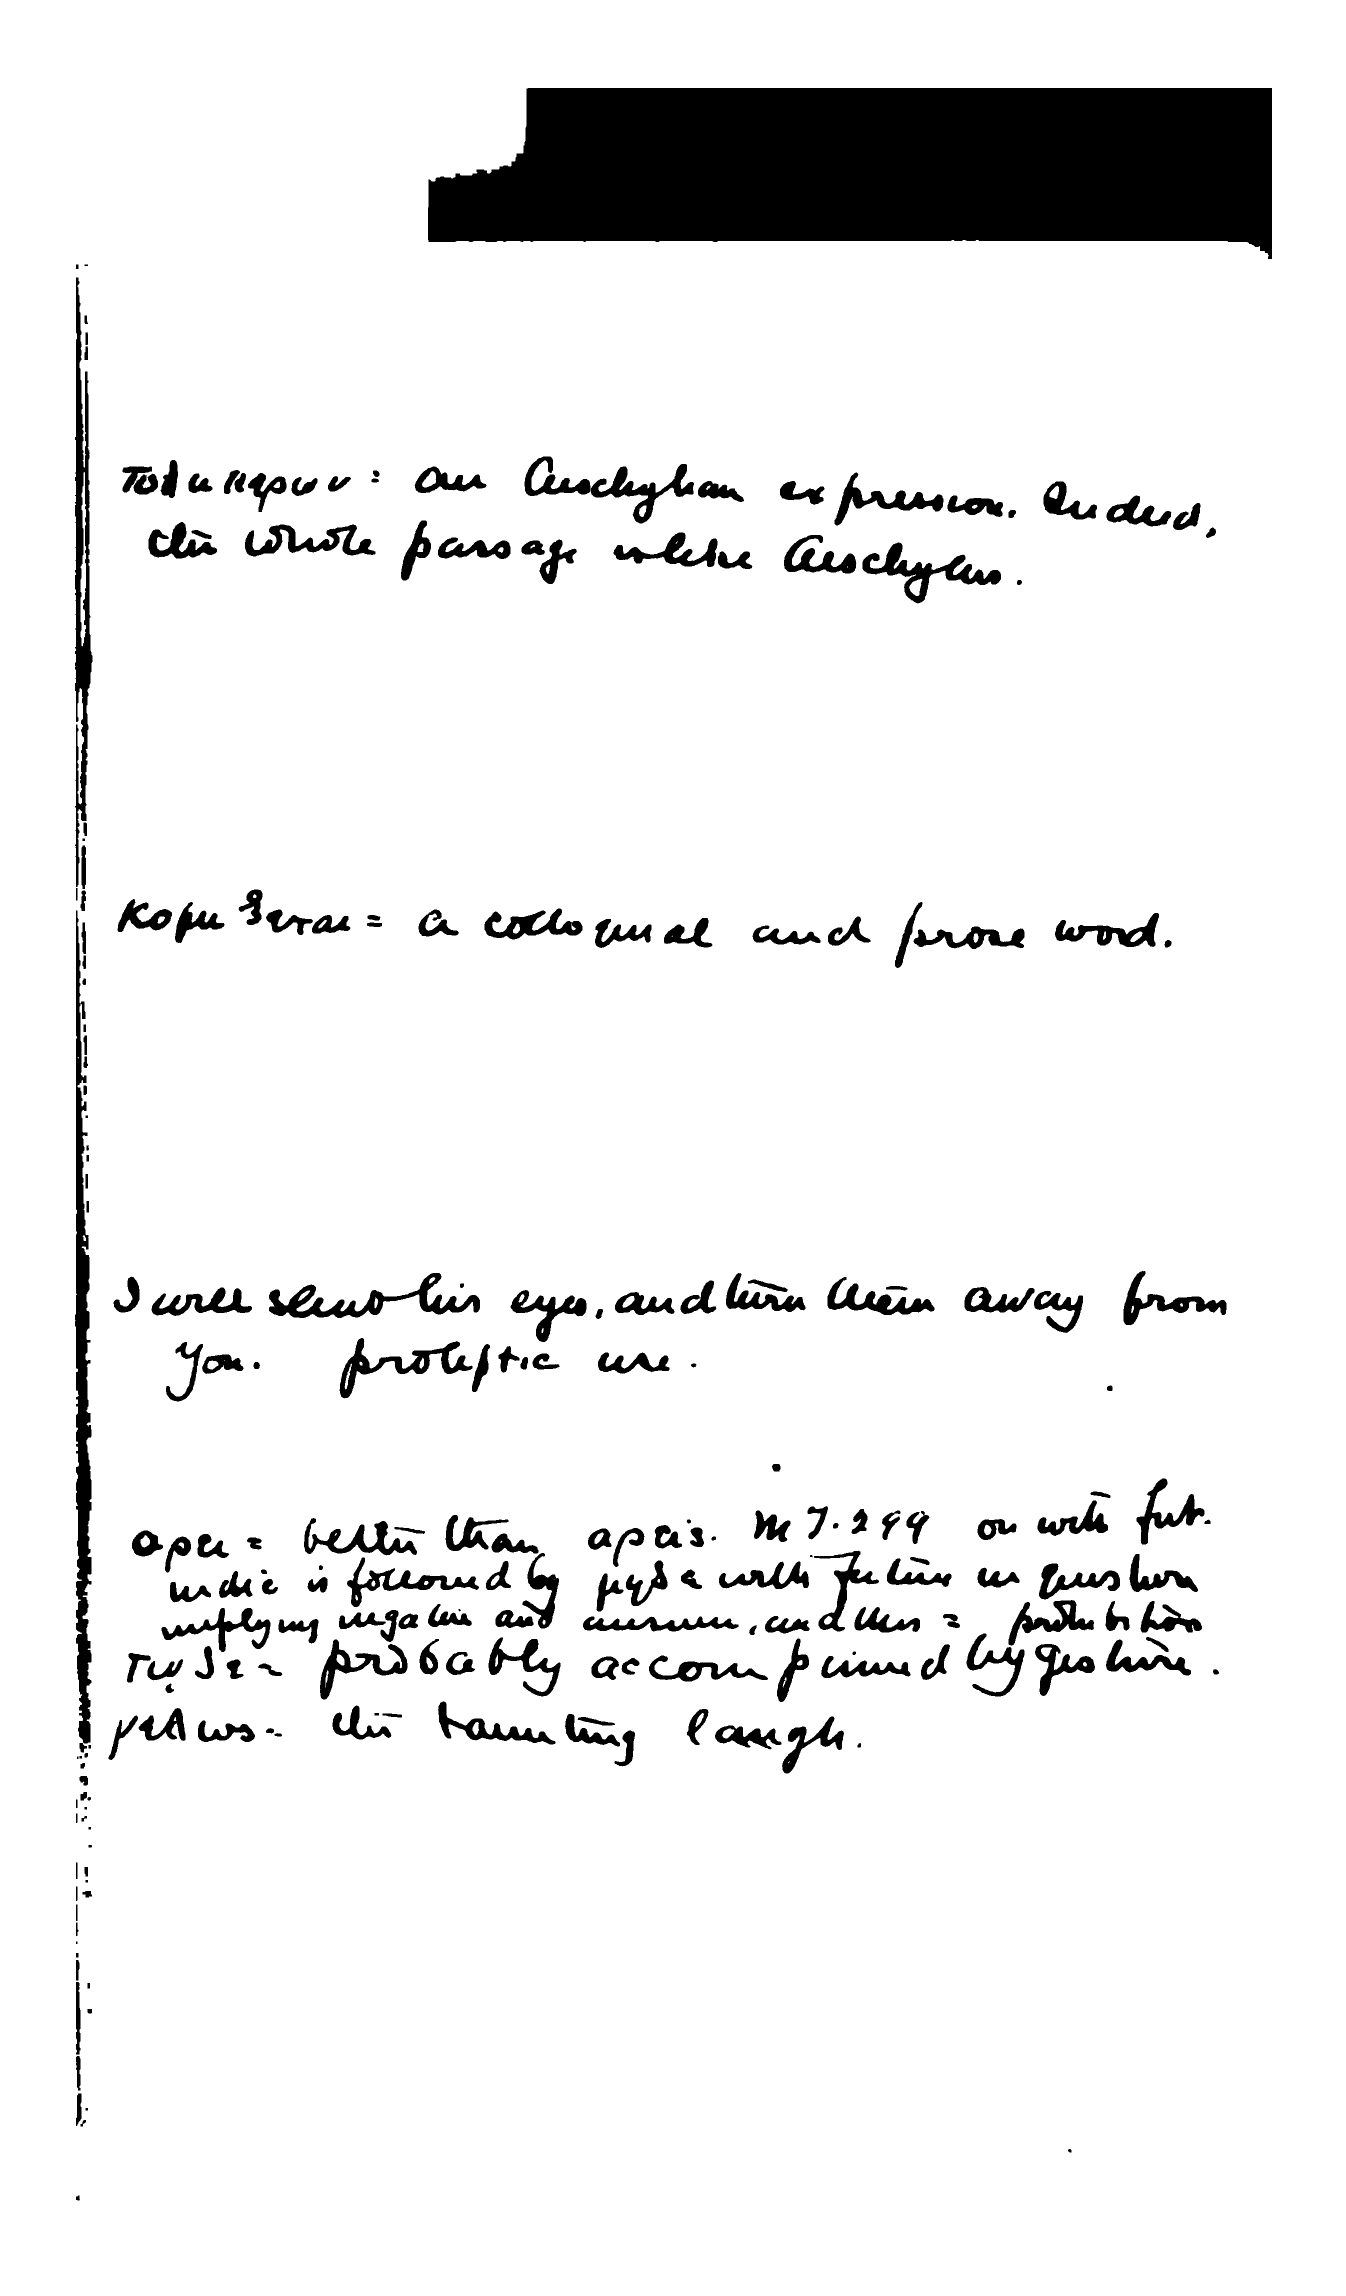 an Aeschylean expression. Indeed,
the whole passage is like Aeschylus.
κομψιζεται = a colloquial and prose word.
I will shut his eyes, and turn them away from
you. proleptic use.
αρει = better than αρεις. MT. 299 ου with fut.
indic is followed by μηδε with future in question
implying negative and answer, and thus = prohibition
τῳδε = probably accompanied by gesture.
γελως = the taunting laugh.